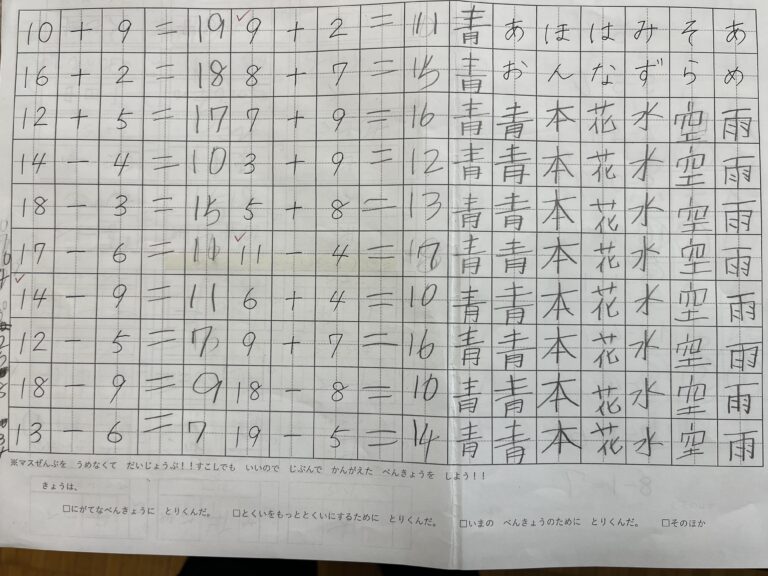 10 + 9 = 19 9 + 2 = 11
16 + 2 = 18 8 + 7 = 15
12 + 5 = 17 7 + 9 = 16
14 - 4 = 10 3 + 9 = 12
18 - 3 = 15 5 + 8 = 13
17 - 6 = 11 11 - 4 =
14 - 9 = 11 6 + 4 = 10
12 - 5 = 7 9 + 7 = 16
18 - 9 = 9 18 - 8 = 10
13 - 6 = 7 19 - 5 = 14
あめ雨雨雨雨雨雨雨雨
そら空空空空空空空空
みず水水水水水水水水
はな花花花花花花花花
ほん本本本本本本本本
あお青青青青青青青青
青青青青青青青青青青
※マスぜんぶを うめなくて だいじょうぶ!!すこしでも いいので じぶんで かんがえた べんきょうを しよう!!
きょうは、
□にがてなべんきょうに とりくんだ。 □とくいをもっととくいにするために とりくんだ。 □いまの べんきょうのために とりくんだ。 □そのほか